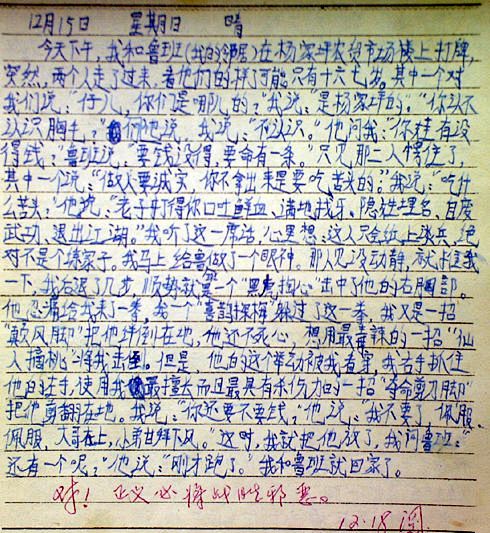 12月15日 星期日 晴
今天下午，我和鲁班(我的邻居)在杨家坪农贸市场楼上打牌，
突然，两个人走了过来，看他们的样可能只有十六七岁。其中一个对
我们说："仔儿，你们是哪儿的？"我说："是杨家坪的。""你认不
认识胸毛？"他说，我说："不认识。"他问我："你娃有没
得钱？"鲁班说："要钱没得，要命有一条。"只见那二人愣住了，
其中一个说："做人要诚实，你不拿出来是要吃苦头的。"我说："吃什
么苦头？"他说："老子打得你口吐鲜血、满地找牙、隐姓埋名、自废
武功、退出江湖。"我听了这一席话，心里想：这人只会纸上谈兵，绝
对不是个练家子。我马上给鲁做了一个眼神。那人见没动静，就推我
一下，我后退了几步，顺势就是一个"黑虎掏心"击中了他的右胸部。
他忍痛给我来了一拳，我一个"喜鹊探梅"躲过了这一拳，我又是一招
"颠风脚"把他绊倒在地，他还不死心，想用最毒辣的一招"仙
人摘桃"将我击倒。但是，他的这个举动被我看穿，我右手抓住
他的左手，使用我最擅长而且最具有杀伤力的一招"夺命剪刀脚"
把他剪翻在地。我说："你还要不要钱，"他说："我不要了，佩服、
佩服，大哥在上，小弟甘拜下风。"这时，我就把他放了，我问鲁班："
还有一个呢？"他说："刚才跑了。"我和鲁班就回家了。
对！正义必将战胜邪恶。
12.18 阅